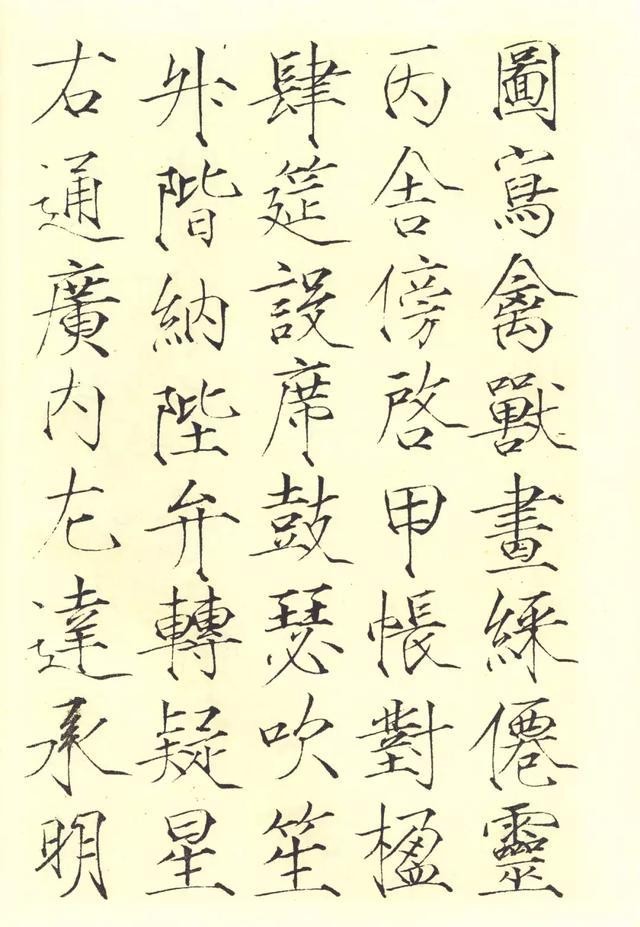 圖寫禽獸畫綵僊靈
丙舍傍啓甲帳對楹
肆筵設席鼓瑟吹笙
升階納陛弁轉疑星
右通廣內左達承明